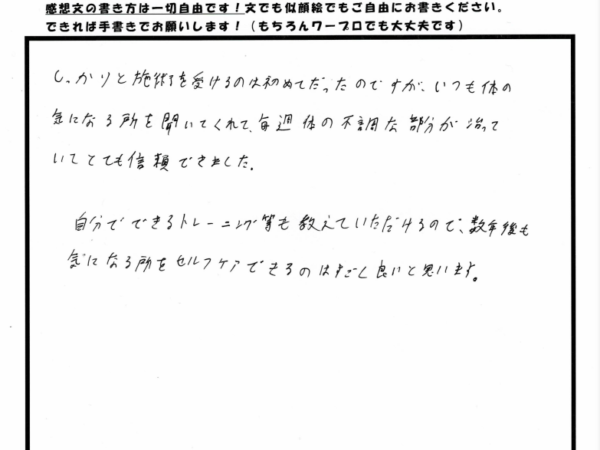 感想文の書き方は一切自由です！文でも似顔絵でもご自由にお書きください。
できれば手書きでお願いします！（もちろんワープロでも大丈夫です）
しっかりと施術を受けるのは初めてだったのですが、いつも体の
気になる所を聞いてくれて、毎週体の不調な部分が治って
いてとても信頼できました。
自分でできるトレーニング等も教えていただけるので、数年後も
気になる所をセルフケアできるのはすごく良いと思います。